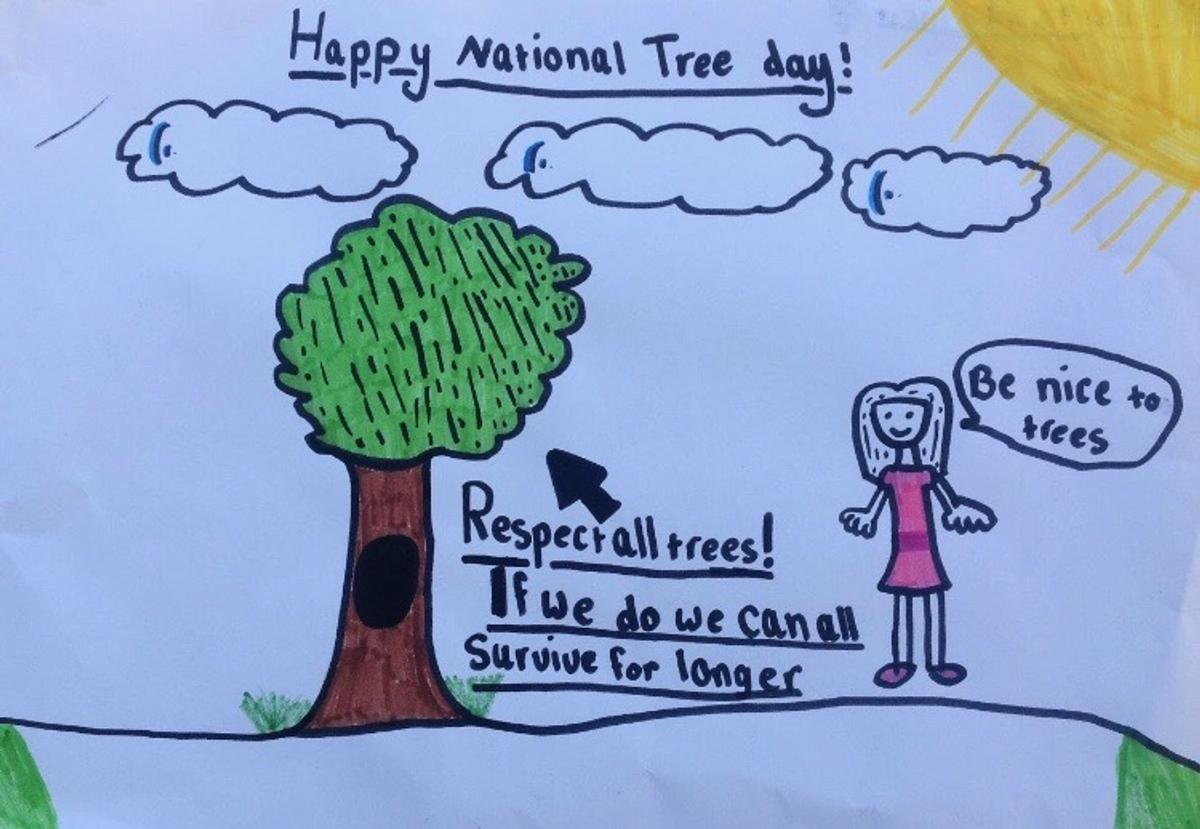 Happy National Tree day!
Be nice to
trees
Respect all trees!
If we do we can all
Survive for longer